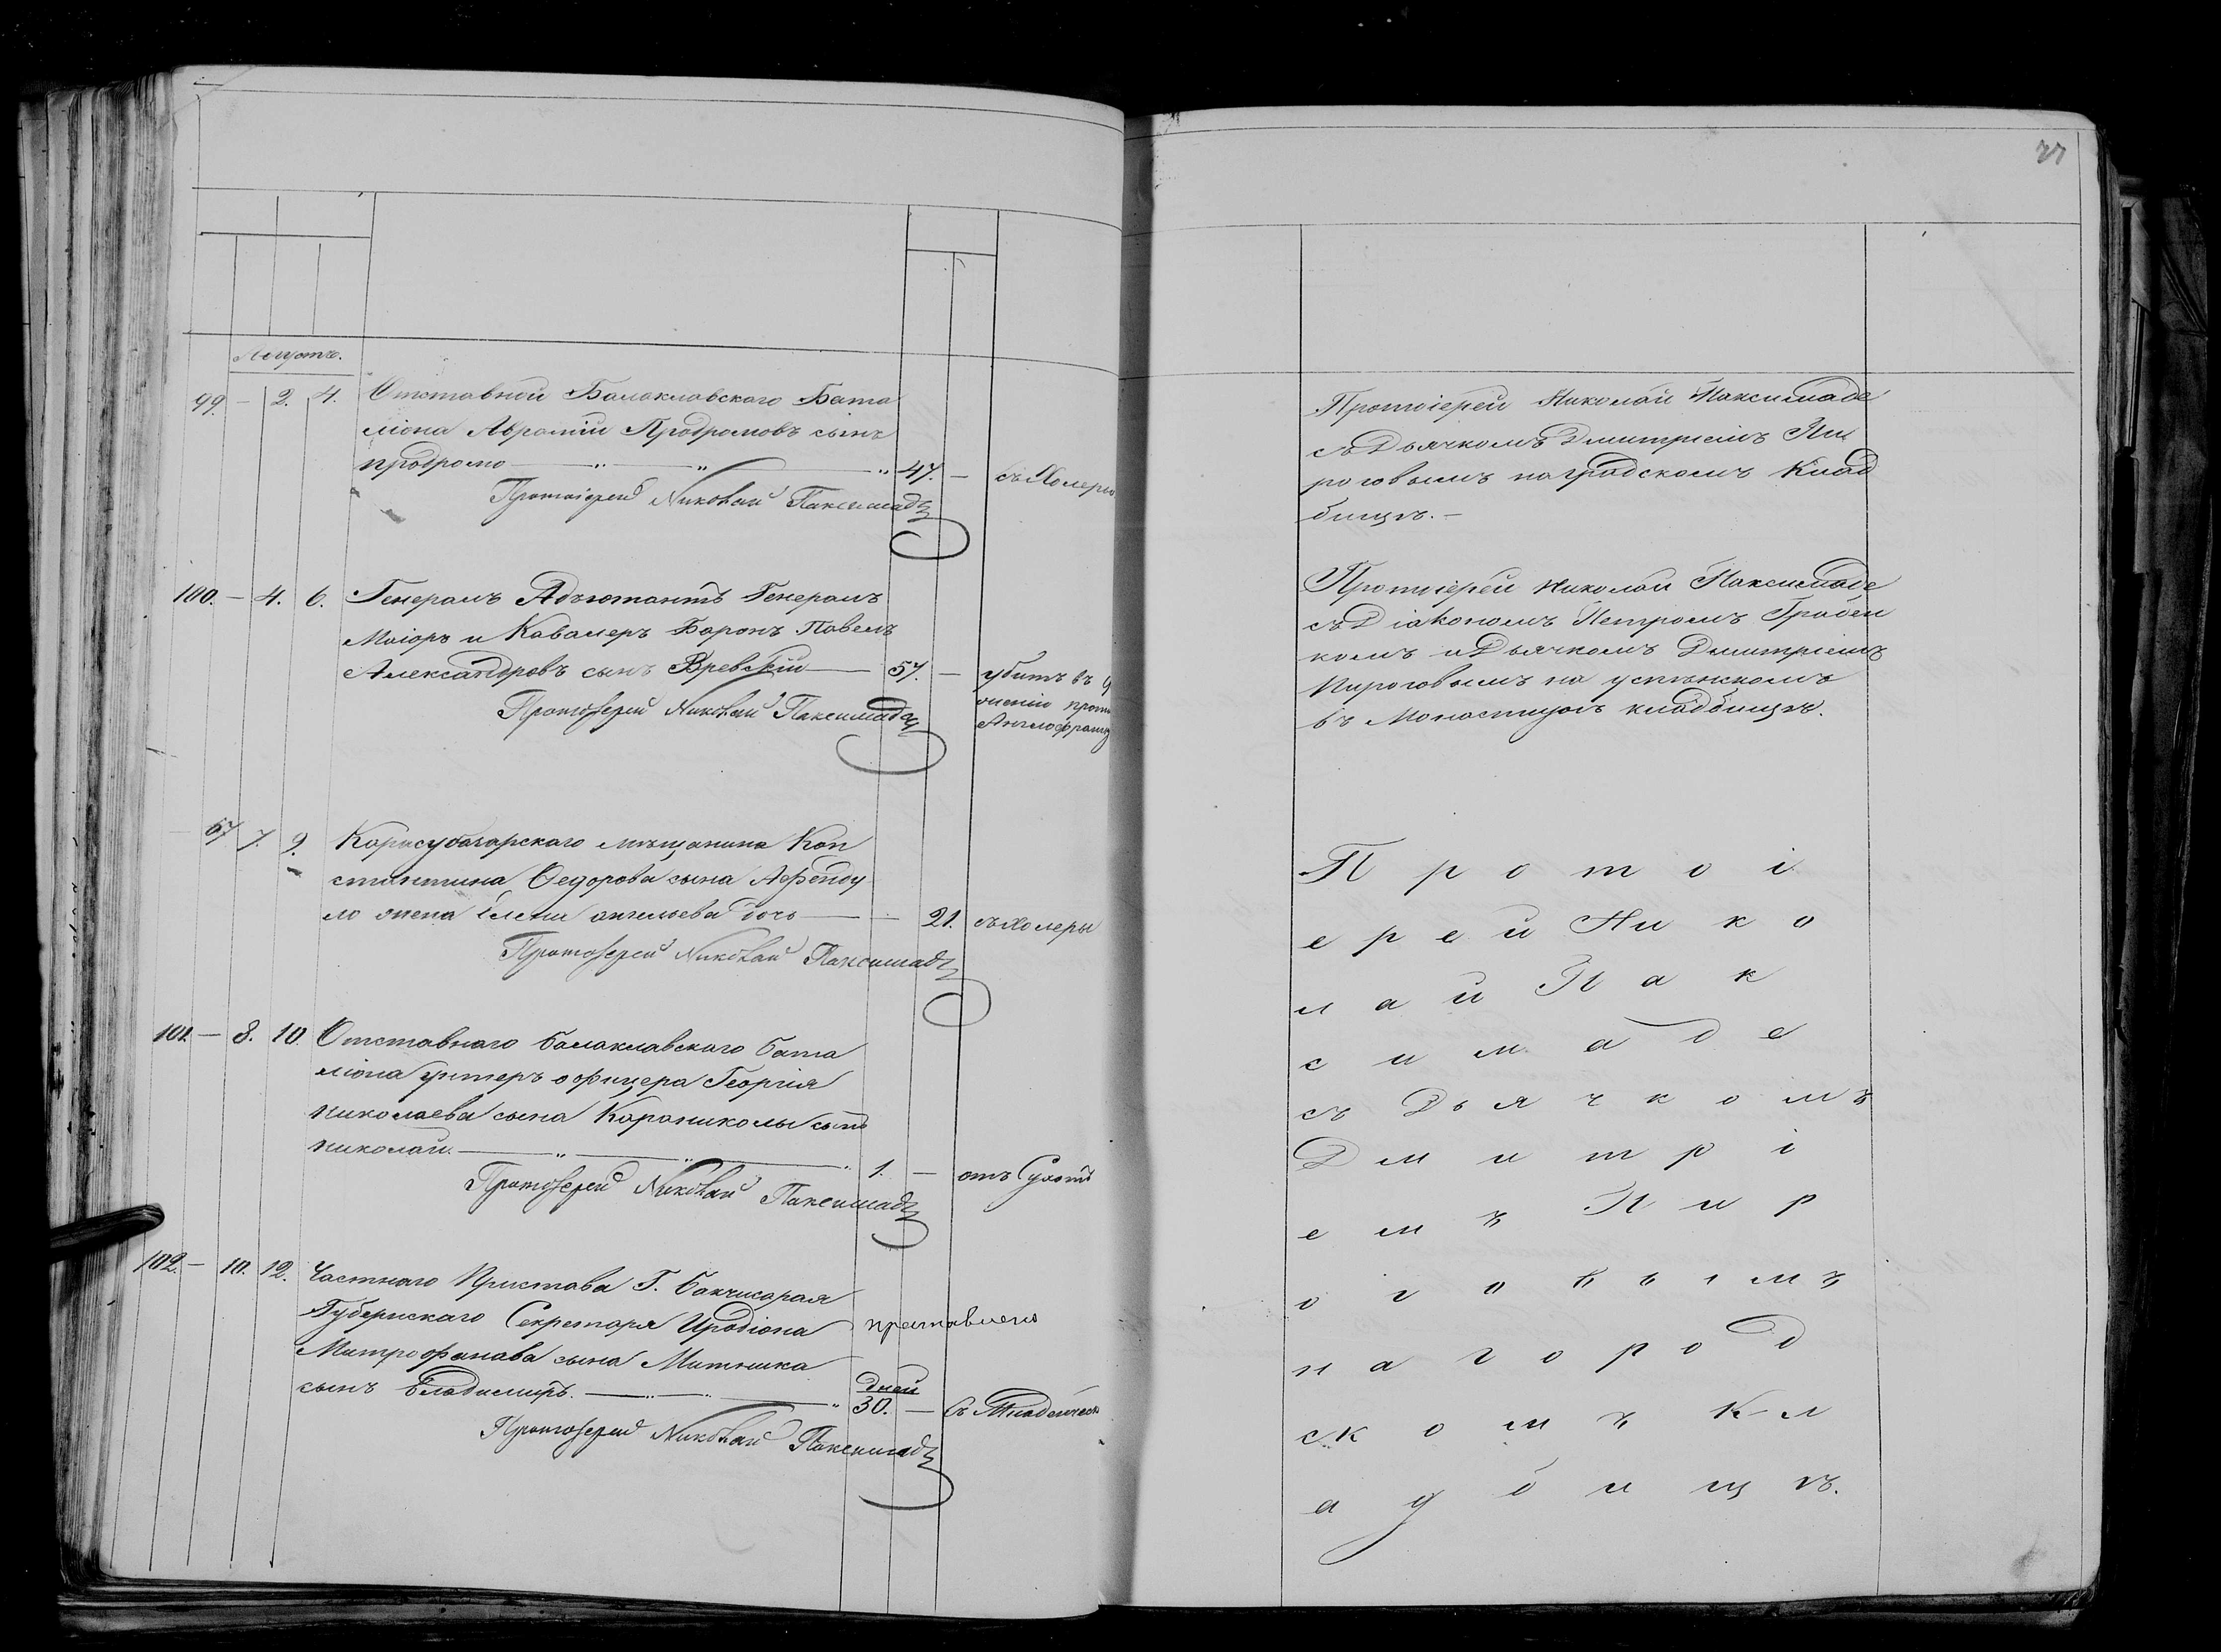 Августъ.
99. — 2. 4. Отставной Балаклавскаго Бата
ліона Аврамій Продромовъ сынъ
продромо — „ — „ — „ 47. — съ Холеры
Протоіерей Николай Паксимадз
100. — 4. 6. Генералъ Адъютантъ Генералъ
Маіоръ и Кавалеръ Баронъ Павелъ
Александровъ сынъ Вревскій — 57. — убитъ въ
Протоіерей Николай Паксимадз
Англофранц
67 7. 9. Карасубазарскаго мѣщанина Кон
стантина Ѳедорова сына Афенду
ло жена Елена ангельева дочь — — 21. съ холеры
Протоіерей Николай Паксимадз
101. — 8. 10. Отставнаго балаклавскаго бата
ліона унтеръ офицера Георгія
николаева сына Караниколы сынъ
николай. — „ — „ — „ 1. — отъ Сухоты
Протоіерей Николай Паксимадз
102. — 10. 12. Частнаго Пристава Г. бакчисарая
Губернскаго Секретаря Иродіона
Митрофанова сына Митника
сынъ владимиръ. — „ — „ — „ дней 30. — съ Младенческ
Протоіерей Николай Паксимадз
77
Протоіерей Николай Паксимаде
съ Дьячкомъ Дмитріемъ Пи
роговымъ на градскомъ Клад
бищѣ. —
Протоіерей Николай Паксимаде
съ Діакономъ Петромъ Грабен
комъ и Дьячкомъ Дмитріемъ
Пироговымъ на успѣнскомъ
въ Монастырѣ кладбищѣ.
П р о т о і
е р е й Н и к о
л а й П а к
с и м а д е
съ Д ь я ч к о м ъ
Д м и т р і
е м ъ П и р
о г о в ы м ъ
н а г о р о д
с к о м ъ К л
а д б и щ ѣ.